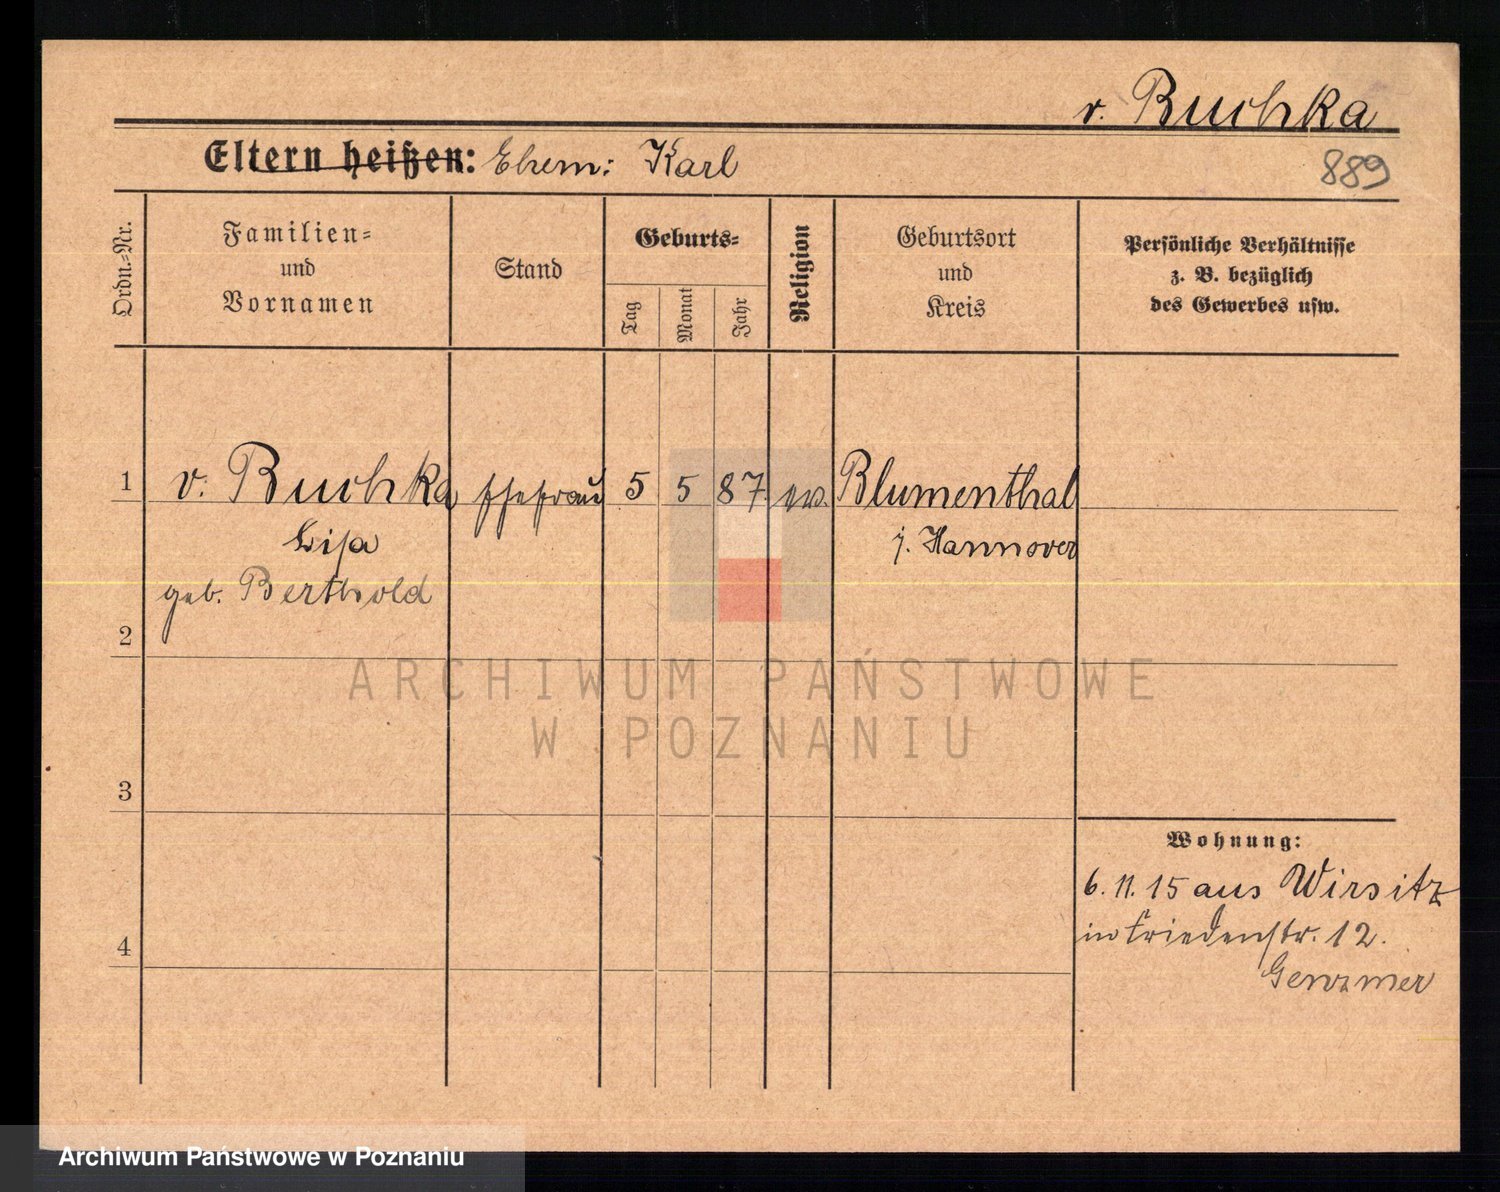 v. Buchka
Eltern heißen: Ehem: Karl
889
Ordn.-Nr.
Familien-
und
Vornamen
Stand
Geburts-
Tag
Monat
Jahr
Religion
Geburtsort
und
Kreis
Persönliche Verhältnisse
z. B. bezüglich
des Gewerbes usw.
1 v. Buchka Ehefrau 5 5 87. ev. Blumenthal
Lisa j. Hannover
geb. Berthold
2
3
4
Wohnung:
6. 11. 15 aus Wirsitz
in Friedenstr. 12.
Genzmer
ARCHIWUM PAŃSTWOWE
W POZNANIU
Archiwum Państwowe w Poznaniu